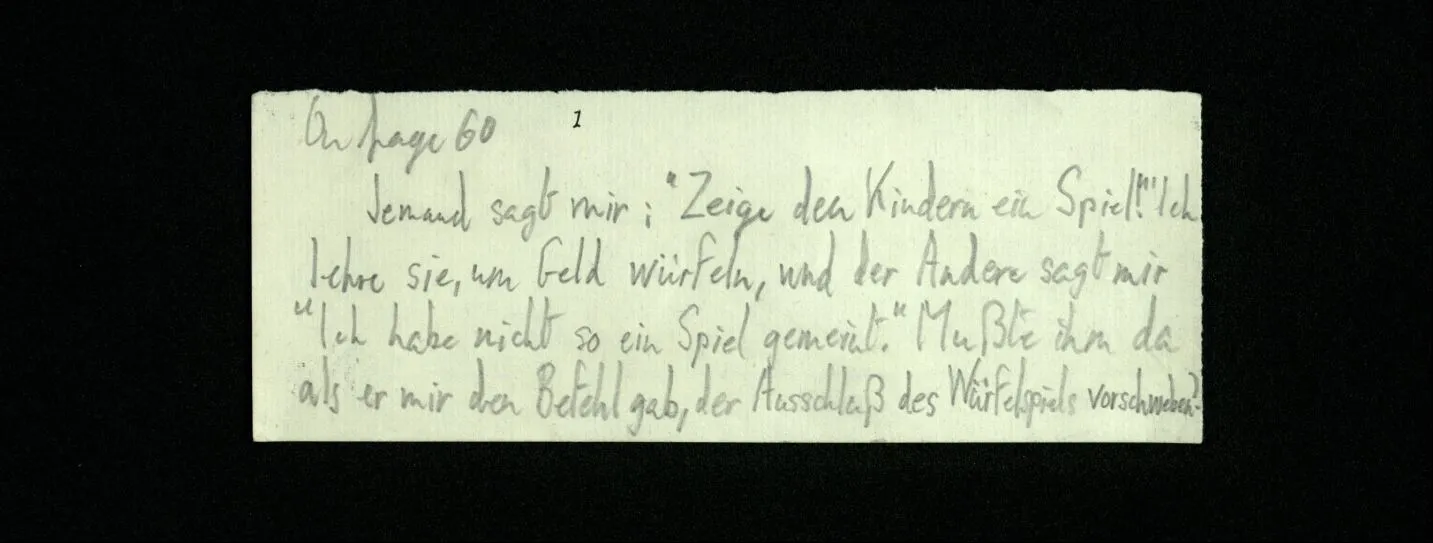 On page 60 1
Jemand sagt mir: "Zeige den Kindern ein Spiel!" Ich
lehre sie, um Geld würfeln, und der Andere sagt mir
"Ich habe nicht so ein Spiel gemeint." Mußte ihm da
als er mir den Befehl gab, der Ausschluß des Würfelspiels vorschweben?